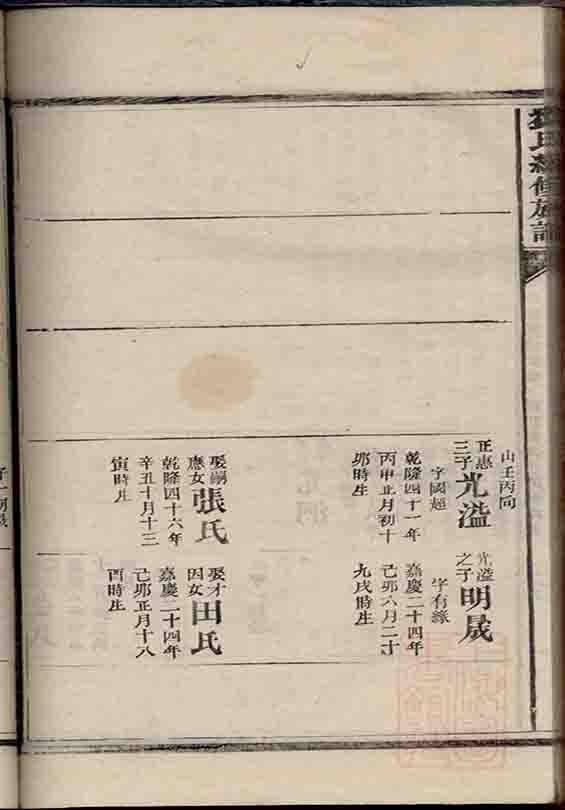 氏續修族譜
山壬丙向
正惠
三子
光溢
字國超
乾隆四十一年
丙申正月初十
卯時生
娶嗣
應女
張氏
乾隆四十六年
辛丑十月十三
寅時生
光溢
之子
明晟
字有緣
嘉慶二十四年
己卯六月二十
九戌時生
娶才
因女
田氏
嘉慶二十四年
己卯正月十八
酉時生